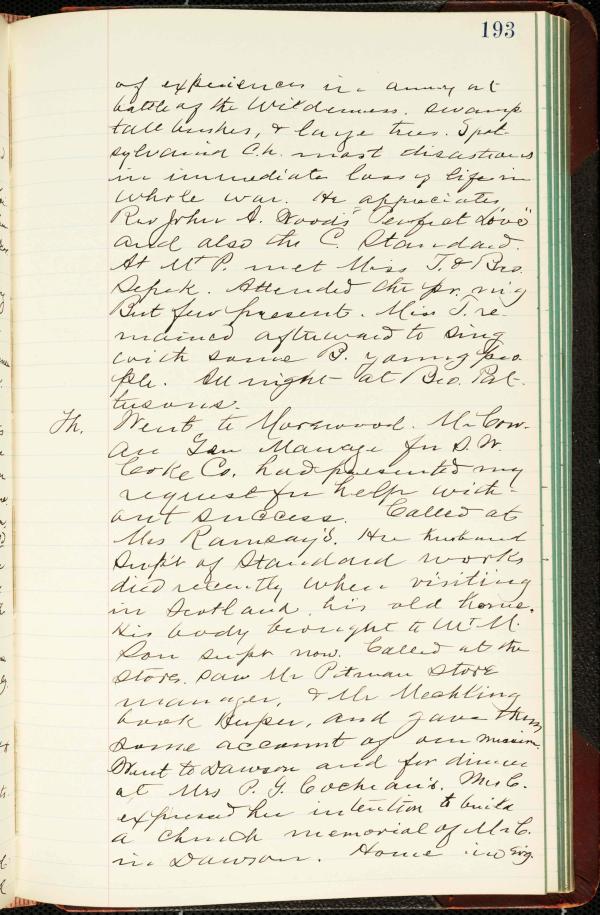 193
of experiences in army at
battle of the Wilderness. swamp
tall bushes, & large trees. Spot-
sylvania C.h. most disastrous
in immediate loss of life in
whole war. He appreciates
Rev John A. Wood's "Perfect Love"
and also the C. Standard.
At Mt P. met Miss T. & Bro.
Attended the pr. m'g
But few present. Miss T. re-
mained afterward to sing
with some B. young peo
ple. All night at Bro. Pat-
tersons.
Th. Went to Morewood. Mr Cow-
an Gen Manage for S.W.
Coke Co. had presented my
request for help with-
out success. Called at
Mrs Ramsay's. Her husband
Supt of Standard works
died recently when visiting
in Scotland his old home.
His body brought to Mt P.
Son supt now. Called at the
store. saw Mr Pitman store
manager, & Mr Mechling
book keeper, and gave them
some account of our mission.
Went to Dawson and for dinner
at Mrs P. G. Cochran's. Mrs C.
expressed her intention to build
a church memorial of Mr C.
in Dawson. Home in ev'g.